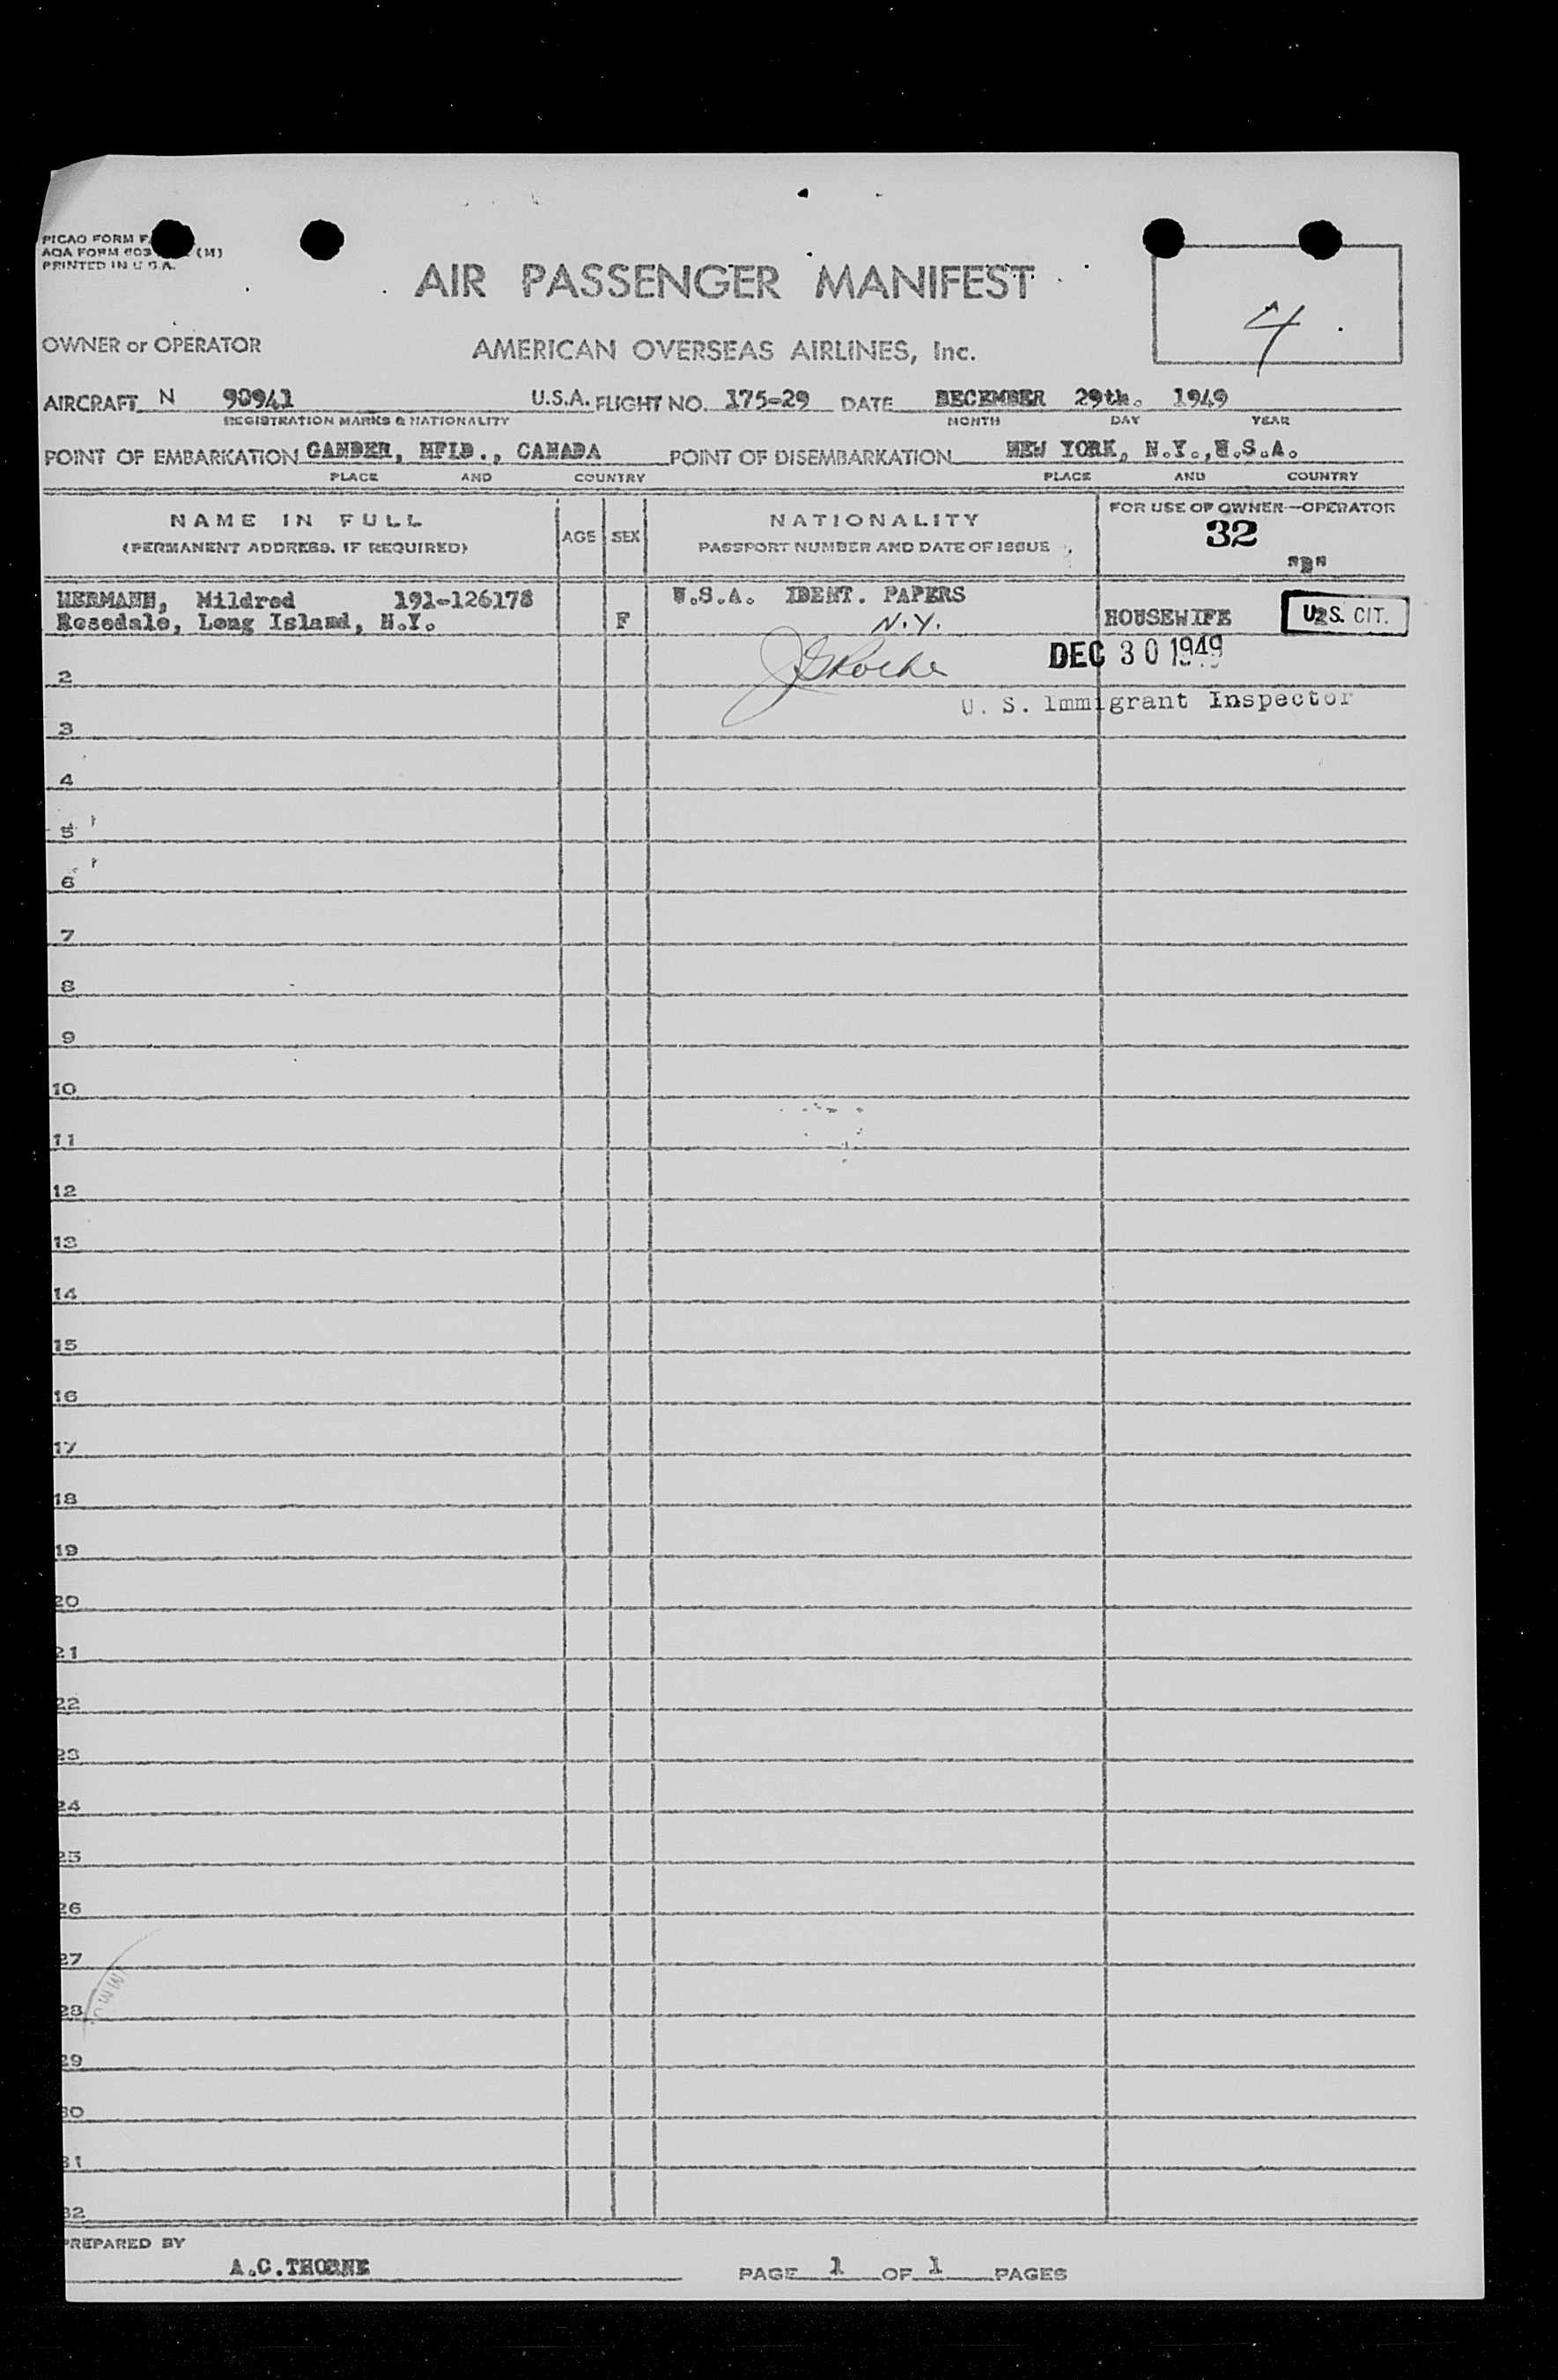 PICAO FORM
AOA FORM 603 (M)
PRINTED IN U.S.A.
AIR PASSENGER MANIFEST
4
OWNER or OPERATOR AMERICAN OVERSEAS AIRLINES, Inc.
AIRCRAFT N 90941 U.S.A. FLIGHT NO. 175-29 DATE DECEMBER 29th. 1949
REGISTRATION MARKS & NATIONALITY MONTH DAY YEAR
POINT OF EMBARKATION GANDER, NFLD., CANADA POINT OF DISEMBARKATION NEW YORK, N.Y.,U.S.A.
PLACE AND COUNTRY PLACE AND COUNTRY
NAME IN FULL AGE SEX NATIONALITY FOR USE OF OWNER—OPERATOR
(PERMANENT ADDRESS, IF REQUIRED) PASSPORT NUMBER AND DATE OF ISSUE 32
"B"
HERMANN, Mildred 191-126178 U.S.A. IDENT. PAPERS
Rosedale, Long Island, N.Y. F N.Y. HOUSEWIFE U.S. CIT.
DEC 30 1949
2
U. S. Immigrant Inspector
3
4
5
6
7
8
9
10
11
12
13
14
15
16
17
18
19
20
21
22
23
24
25
26
27
28
29
30
31
32
PREPARED BY
A.C.THORNE PAGE 1 OF 1 PAGES